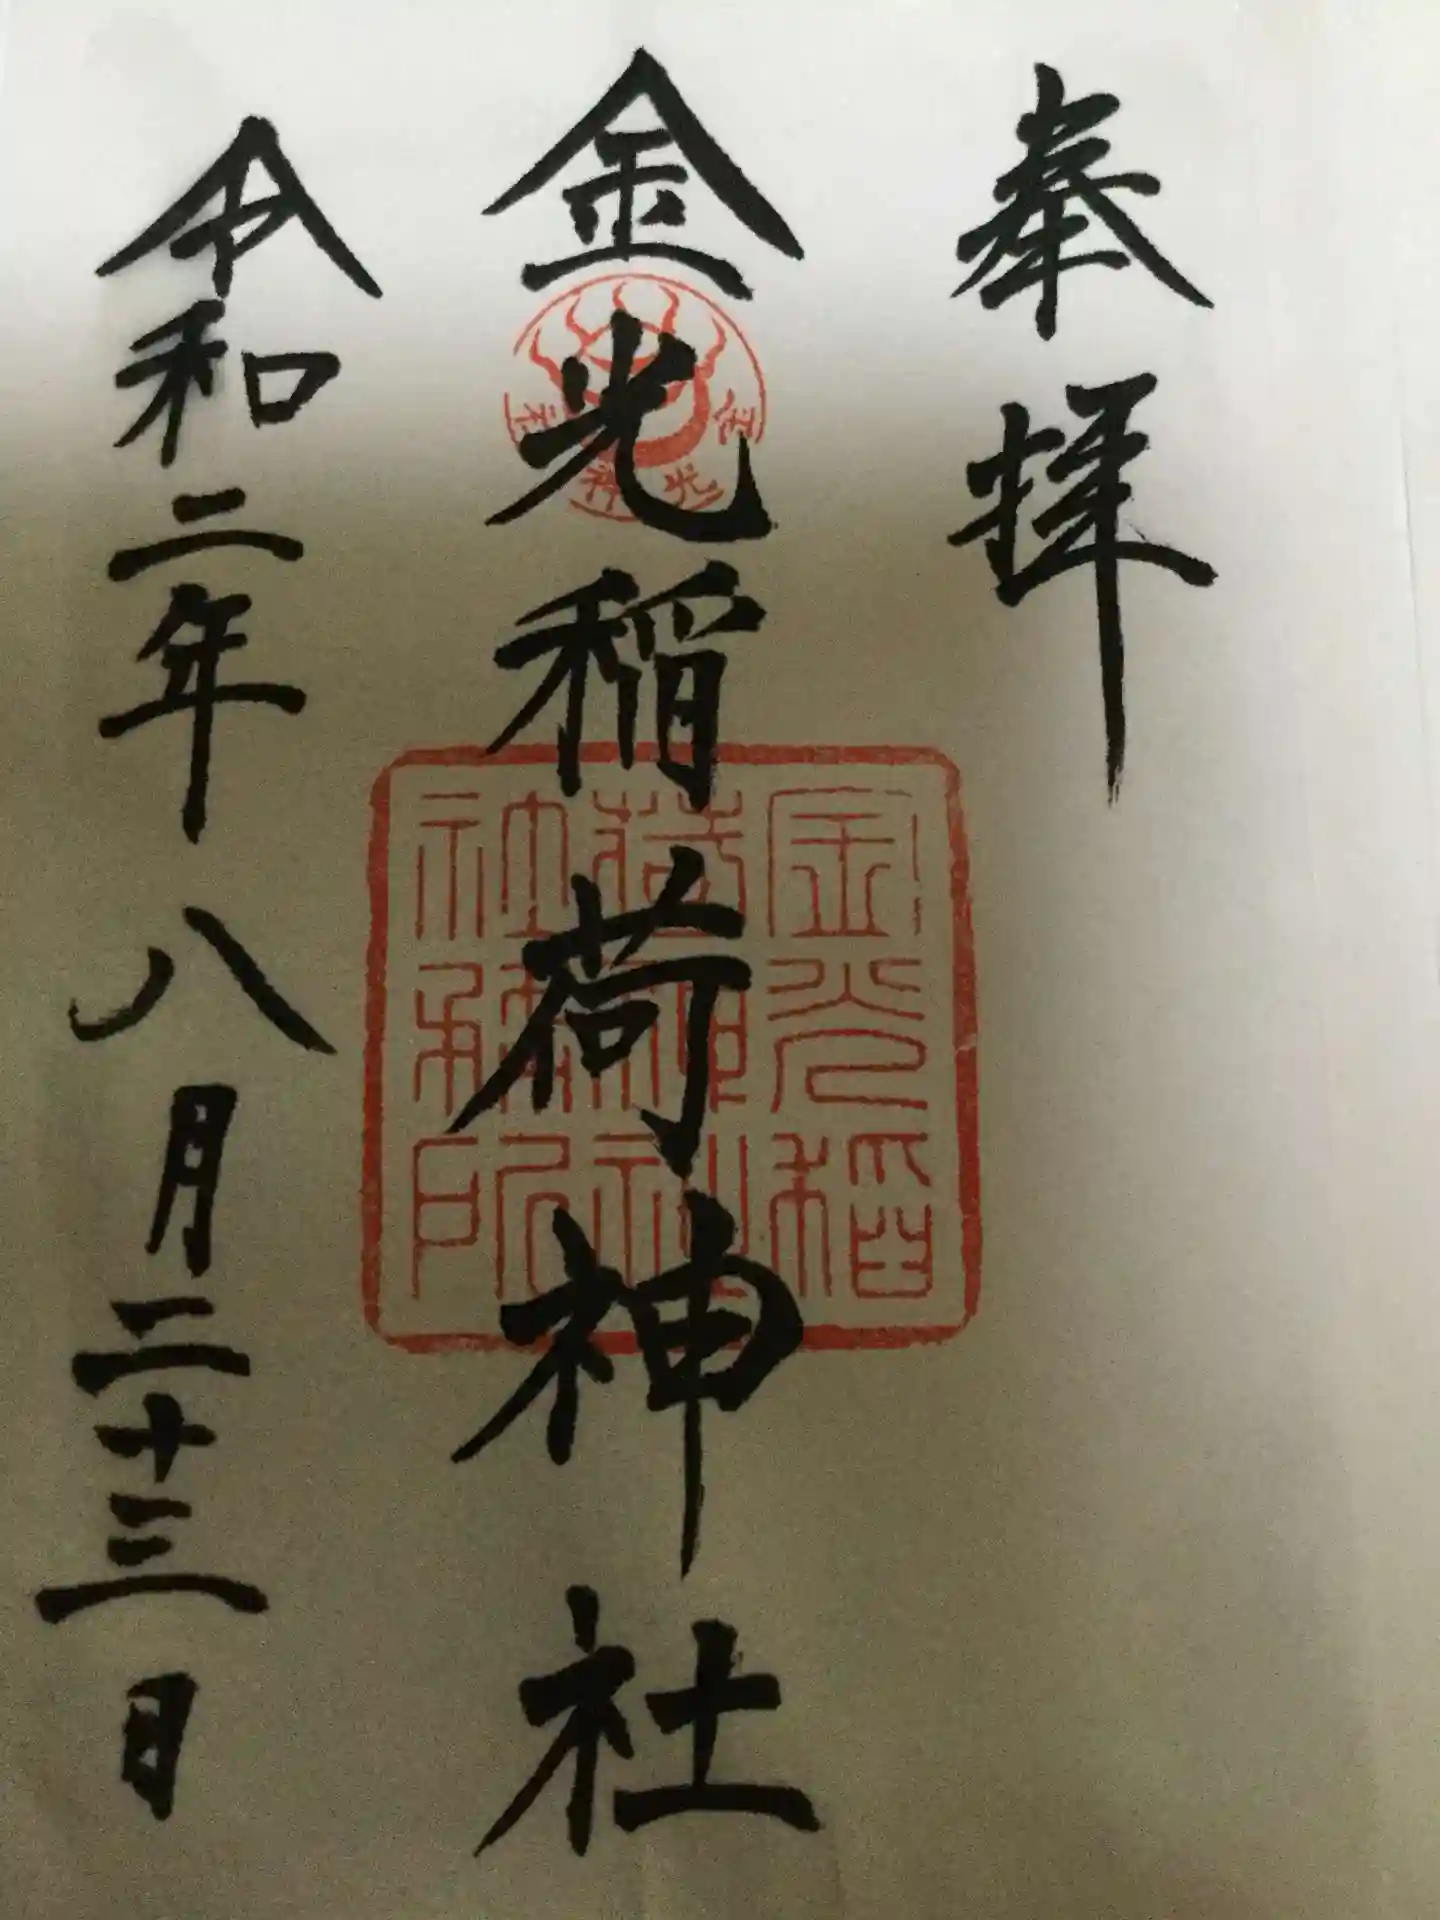 奉拝
金光稲荷神社
令和二年八月二十三日
金光稲
荷神社
社務所